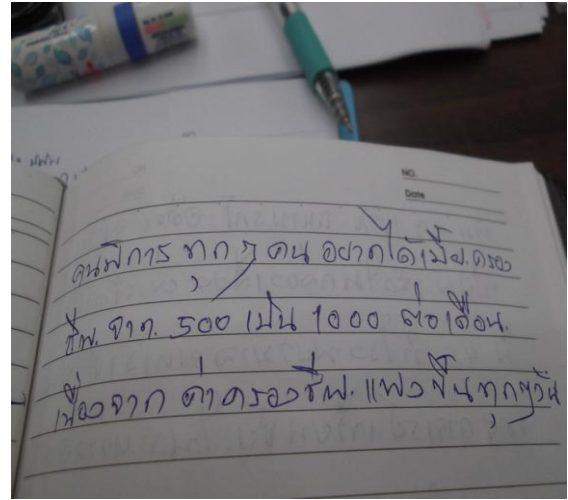 NO.
Date
คนพิการ ทุก ๆ คน อยากได้เบี้ย.ครอง
ชีพ. จาก. 500 เป็น 1000 ต่อเดือน.
เนื่องจาก ค่าครองชีพ. แพงขึ้นทุกๆวัน